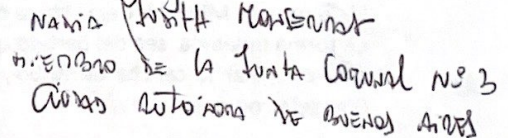 MARIA JUDITH MONSERRAT
MIEMBRO DE LA JUNTA COMUNAL Nº 3
CIUDAD AUTONOMA DE BUENOS AIRES